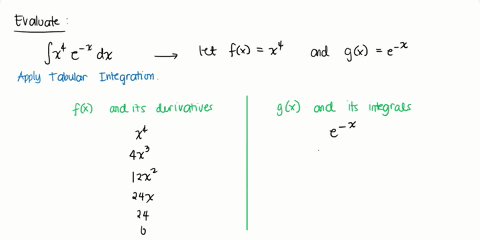 Evaluate:
∫x⁴ e⁻ˣ dx → let f(x) = x⁴ and g(x) = e⁻ˣ
Apply Tabular Integration.
f(x) and its derivatives
g(x) and its integrals
x⁴
e⁻ˣ
4x³
12x²
24x
24
0